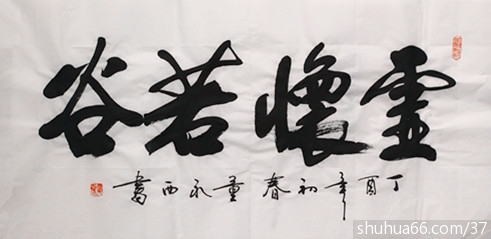 虛懷若谷
丁酉年初春董永西書
shuhua66.com/37